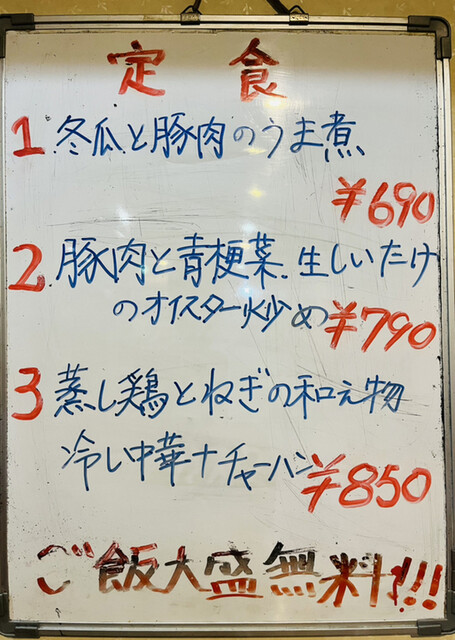 定食
1. 冬瓜と豚肉のうま煮
¥690
2. 豚肉と青梗菜.生しいたけ
のオイスター炒め¥790
3 蒸し鶏とねぎの和え物
冷し中華+チャーハン¥850
ご飯大盛無料!!!